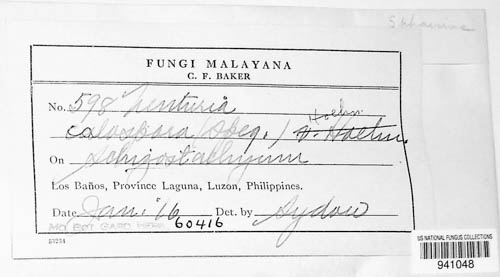 FUNGI MALAYANA
C. F. BAKER
No. 598 Venturia
Hoehn.
calospora (Speg.) v. Hoehn.
On Schizostachyum
Los Baños, Province Laguna, Luzon, Philippines.
Date Jan. '16 Det. by Sydow
MO. BOT. GARD. HERB. 60416
53234
US NATIONAL FUNGUS COLLECTIONS
941048